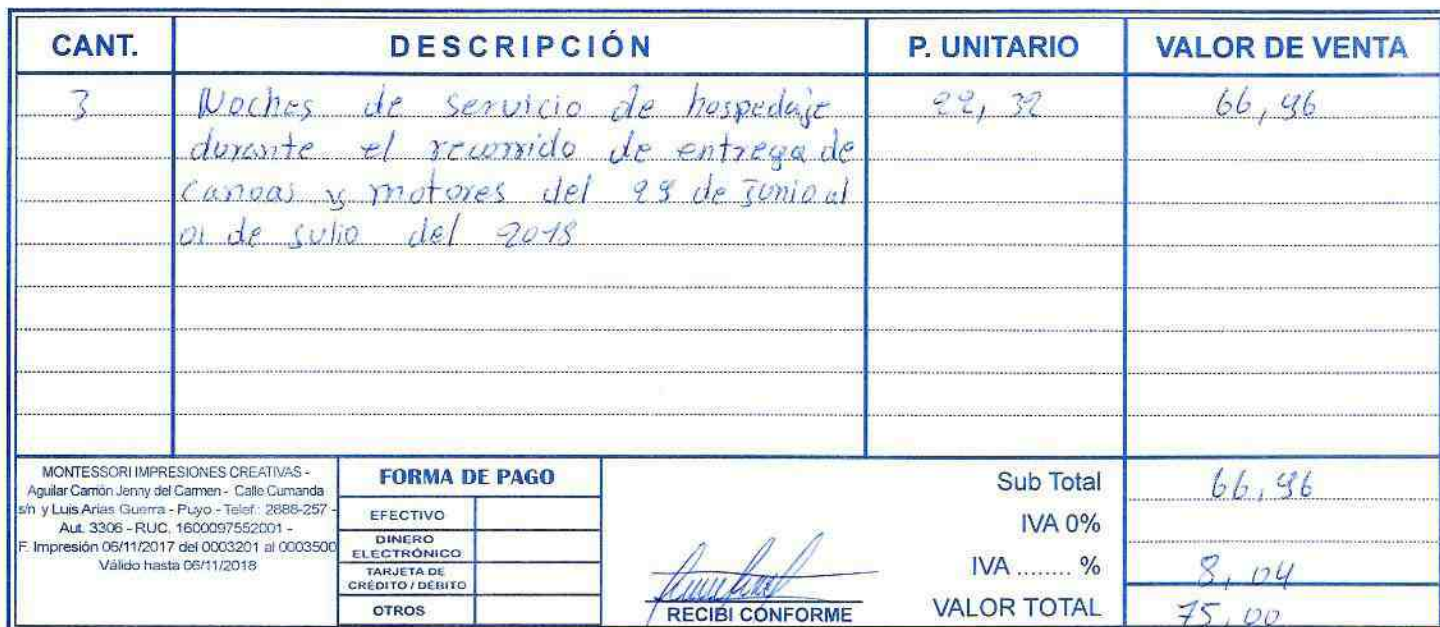 CANT. DESCRIPCIÓN P. UNITARIO VALOR DE VENTA
3 Noches de servicio de hospedaje 22,32 66,96
durante el recorrido de entrega de
canoas y motores del 29 de Junio al
01 de Julio del 2018
MONTESSORI IMPRESIONES CREATIVAS -
Aguilar Carrión Jenny del Carmen - Calle Cumanda
s/n y Luis Arias Guerra - Puyo - Telef.: 2888-257 -
Aut. 3306 - RUC. 1600097552001 -
F. Impresión 06/11/2017 del 0003201 al 0003500
Válido hasta 06/11/2018
FORMA DE PAGO
EFECTIVO
DINERO
ELECTRÓNICO
TARJETA DE
CRÉDITO / DÉBITO
OTROS
RECIBI CONFORME
Sub Total 66,96
IVA 0%
IVA ........ % 8,04
VALOR TOTAL 75,00